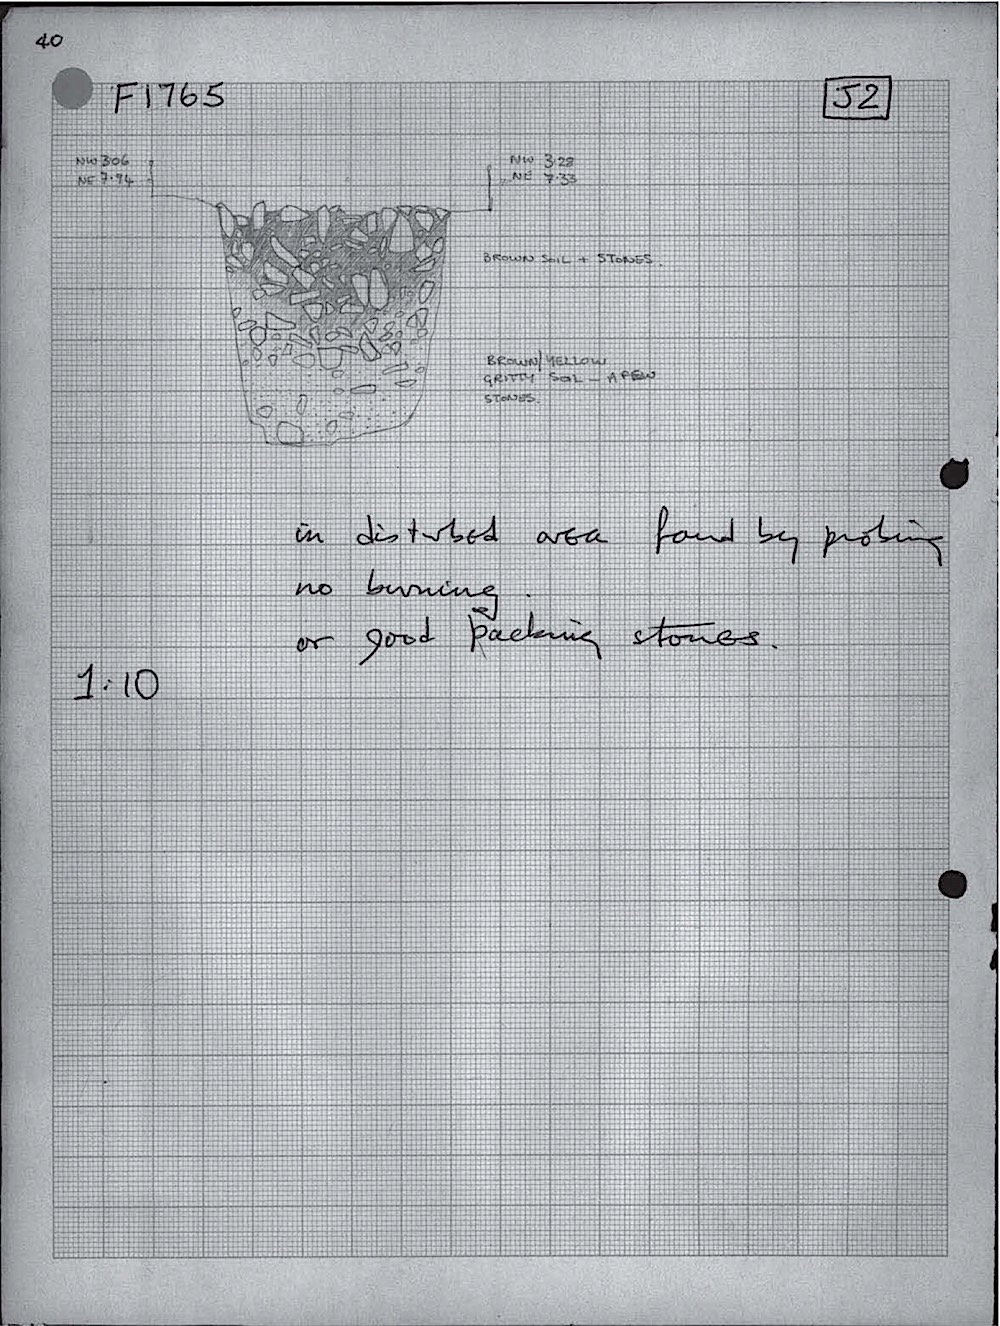 40
F1765
J2
NW 306
NE 7.94
NW 3.28
NE 7.33
BROWN SOIL + STONES.
BROWN/YELLOW
GRITTY SOIL – A FEW
STONES.
in disturbed area found by probing
no burning.
or good packing stones.
1:10